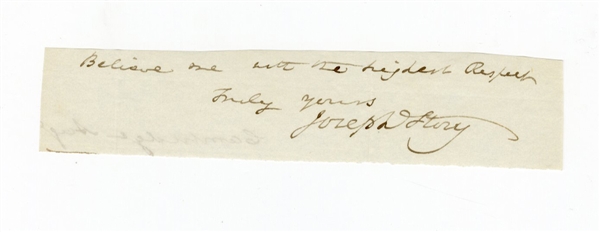 Believe me with the highest Respect
Truly yours
Joseph Story